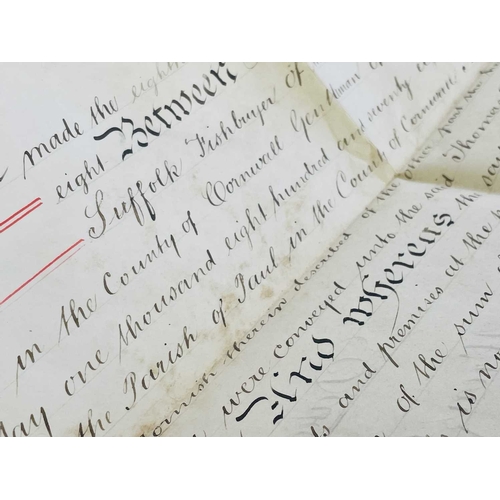 made the eighth
eight Between
Suffolk Fishbuyer of
in the County of Cornwall Gentleman
one thousand eight hundred and seventy
the Parish of Paul in the County of Cornwall.
therein described of the other part
were conveyed unto the said Thomas
And whereas the
and premises at the
of the sum
is